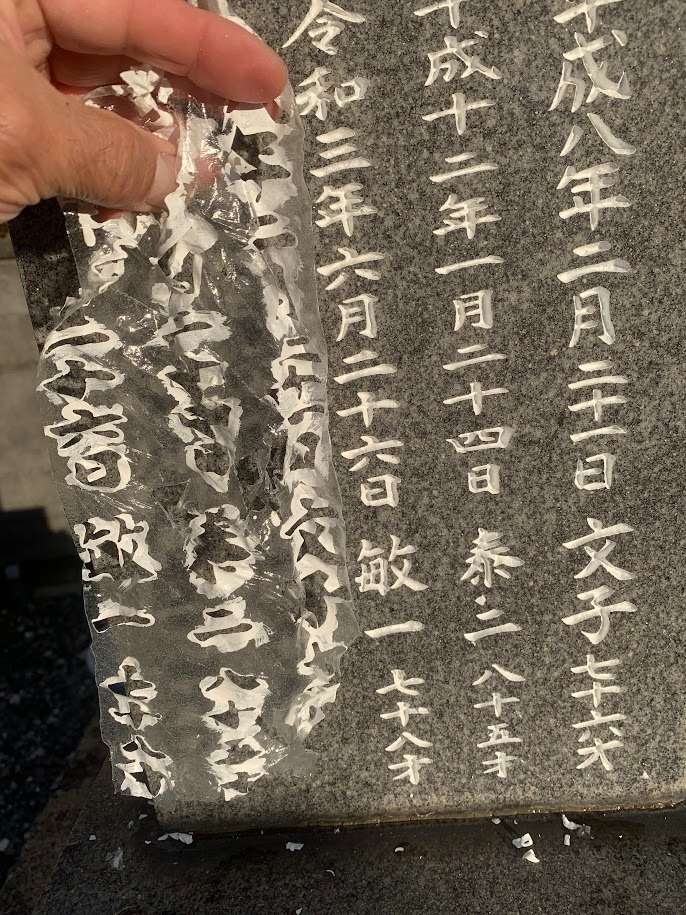 平成八年二月二十一日 文子 七十六才
平成十二年一月二十四日 泰三 八十五才
令和三年六月二十六日 敏一 七十八才